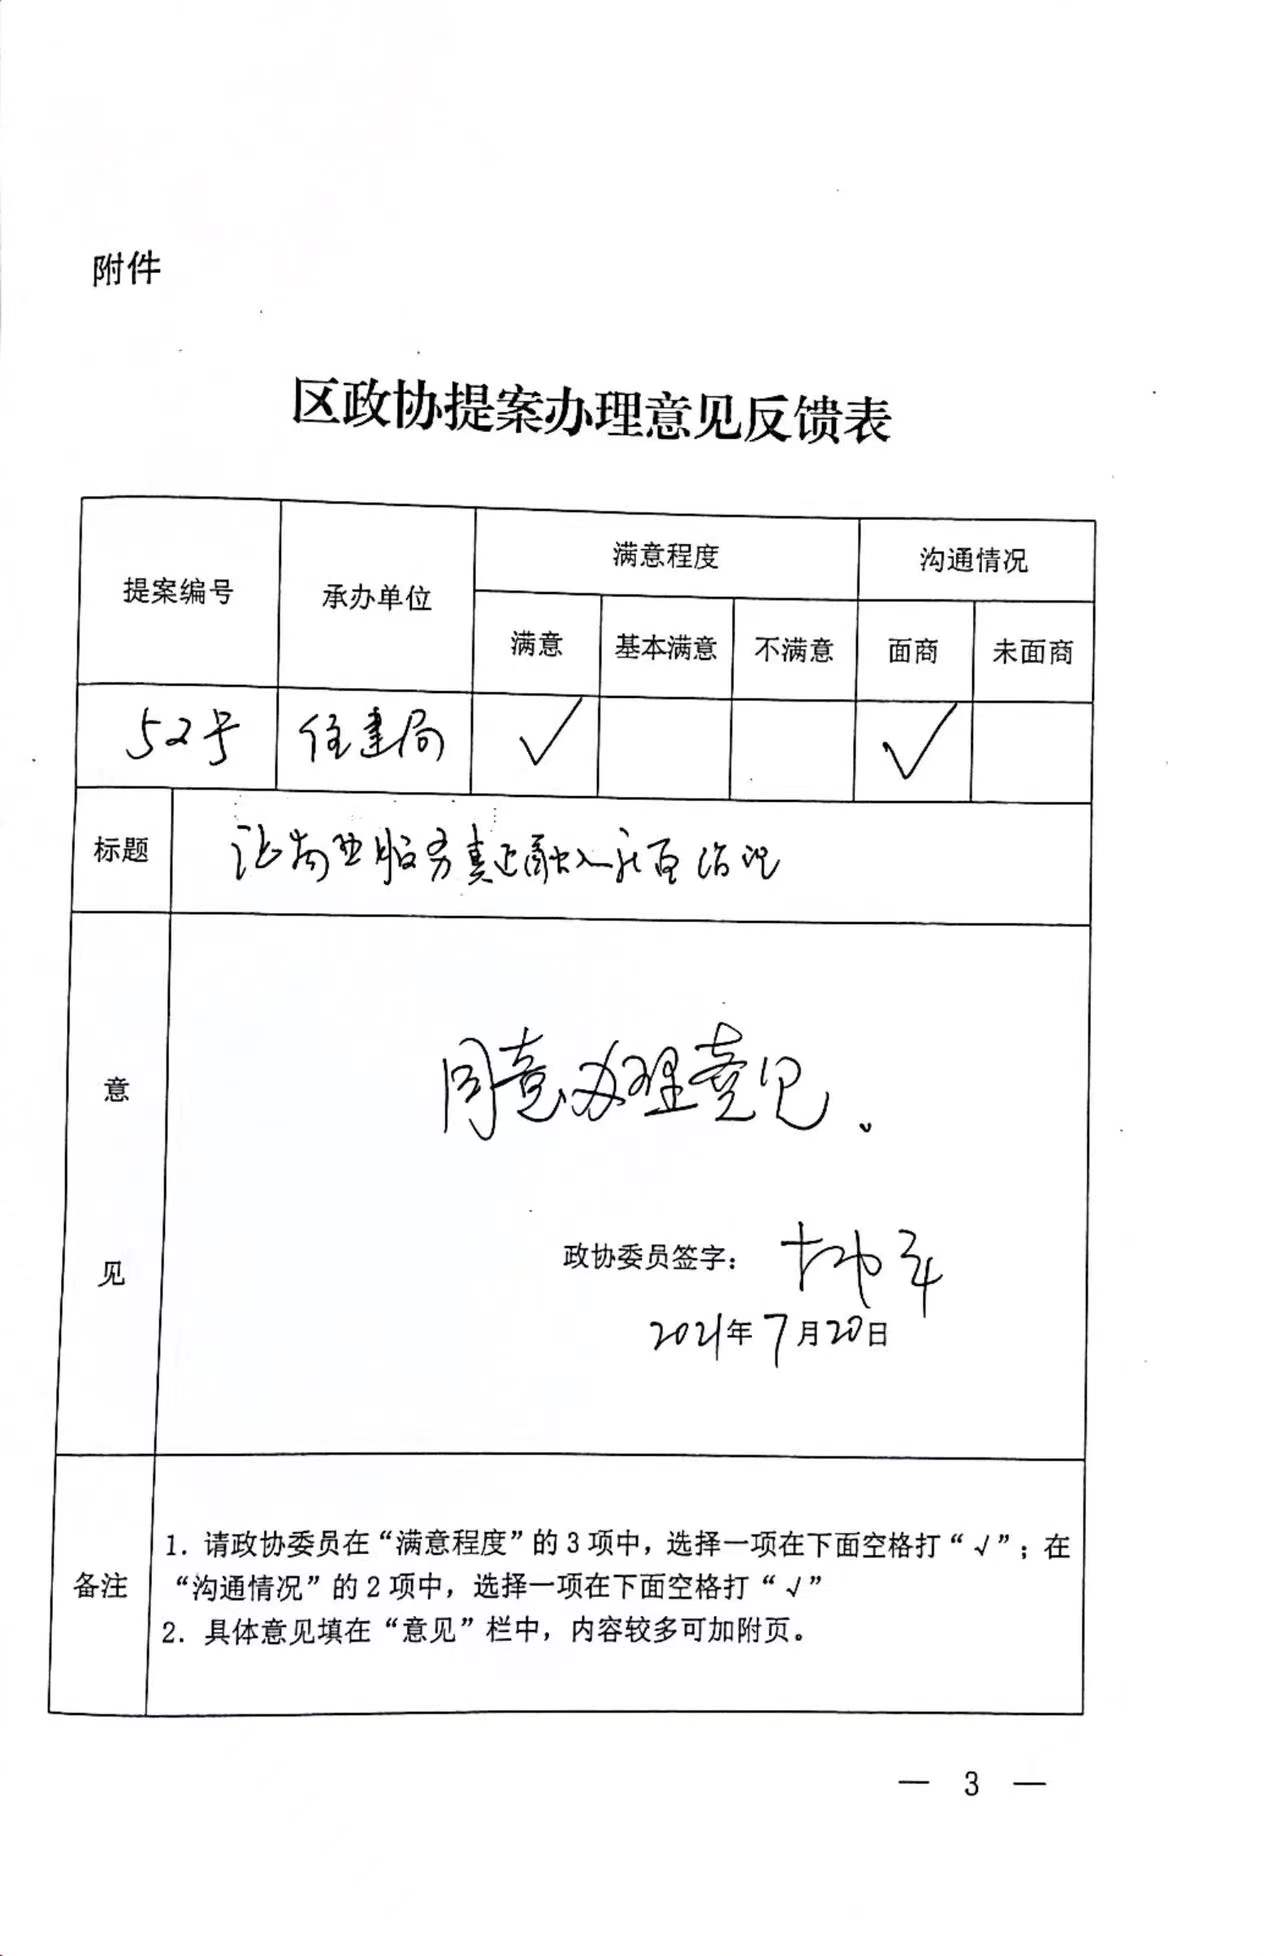 附件
区政协提案办理意见反馈表
提案编号 承办单位 满意程度 沟通情况
满意 基本满意 不满意 面商 未面商
52号 住建局 √ √
标题 让物业服务真正融入 治理
意见
同意办理意见。
政协委员签字：
2021年7月20日
备注
1. 请政协委员在“满意程度”的3项中，选择一项在下面空格打“√”；在
“沟通情况”的2项中，选择一项在下面空格打“√”
2. 具体意见填在“意见”栏中，内容较多可加附页。
— 3 —